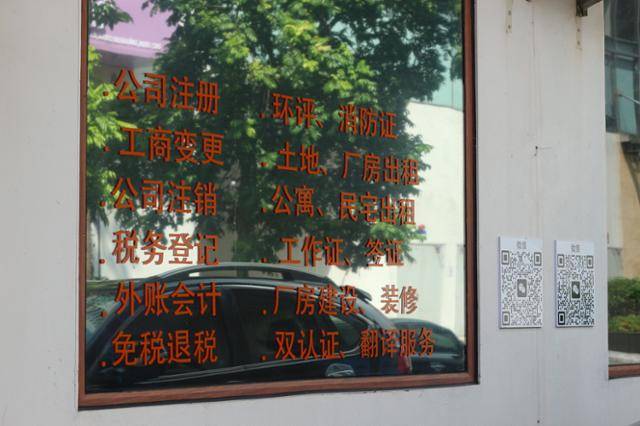 .公司注册
.工商变更
.公司注销
.税务登记
.外账会计
.免税退税
.环评、消防证
.土地、厂房出租
.公寓、民宅出租
.工作证、签证
.厂房建设、装修
.双认证、翻译服务
微信
微信